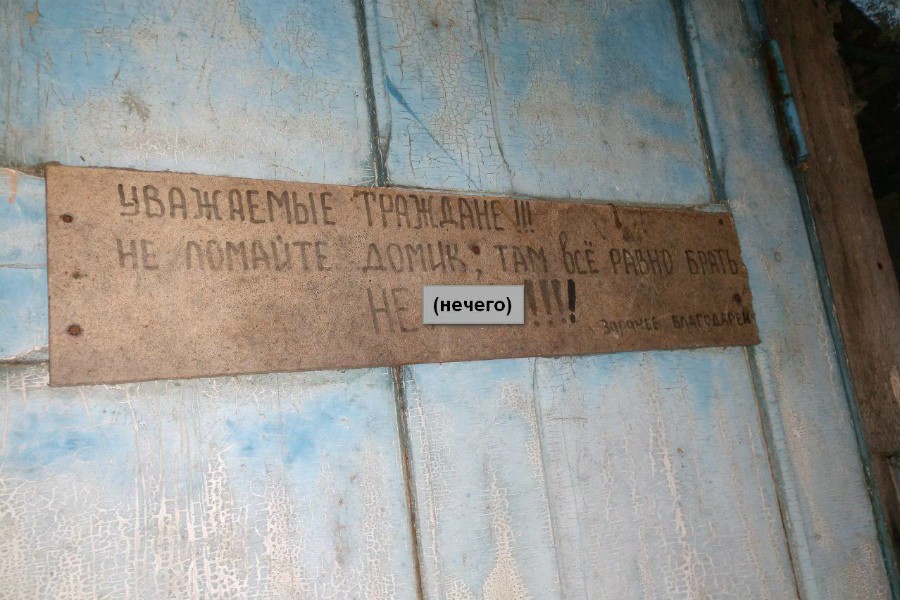 УВАЖАЕМЫЕ ГРАЖДАНЕ!!!
НЕ ЛОМАЙТЕ ДОМИК, ТАМ ВСЁ РАВНО БРАТЬ
НЕ (нечего) !!!!
Заранее БЛАГОДАРЕН